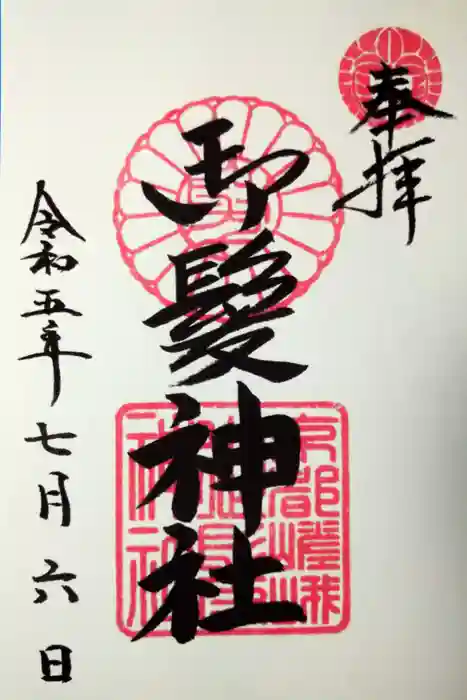 奉拝
御髪神社
令和五年七月六日